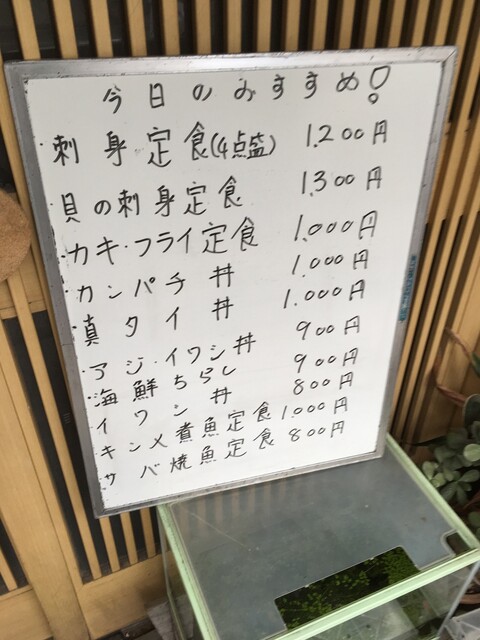 今日のおすすめ!
刺身定食(4点盛) 1.200円
・貝の刺身定食 1.300円
・カキ・フライ定食 1.000円
・カンパチ丼 1.000円
・真タイ丼 1.000円
・アジ・イワシ丼 900円
・海鮮ちらし 900円
・イワシ丼 800円
・キンメ煮魚定食 1.000円
・サバ焼魚定食 800円